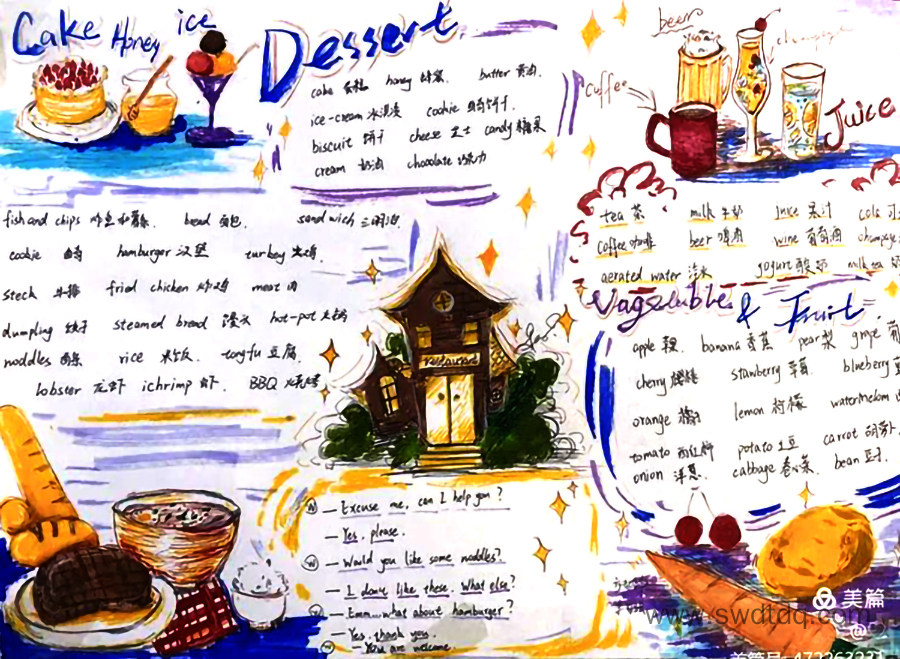 Cake Honey ice
Dessert
cake 蛋糕 honey 蜂蜜 butter 黄油
ice-cream 冰淇淋 cookie 曲奇饼干
biscuit 饼干 cheese 芝士 candy 糖果
cream 奶油 chocolate 巧克力
beer
champagne
coffee
Juice
tea 茶 milk 牛奶 juice 果汁 cola
coffee 咖啡 beer 啤酒 wine 葡萄酒
aerated water 汽水 yogurt 酸奶 milk tea
fish and chips 炸鱼和薯条 bread 面包 sandwich 三明治
cookie 曲奇 hamburger 汉堡 turkey 火鸡
steck 牛排 fried chicken 炸鸡 meat 肉
dumpling 饺子 steamed bread 馒头 hot-pot 火锅
noddles 面条 rice 米饭 tougfu 豆腐
lobster 龙虾 ichrimp 虾 BBQ 烧烤
restaurant
Vagetuble & Fruit
apple 苹果 banana 香蕉 pear 梨 grape 葡
cherry 樱桃 strawberry 草莓 blueberry
orange 橘 lemon 柠檬 watermelom
tomato 西红柿 potato 土豆 carrot 胡萝卜
onion 洋葱 cabbage 卷心菜 bean 豆子
— Excuse me, can I help you?
— Yes, please.
— Would you like some noddles?
— I don't like these. What else?
— Emm...what about hamburger?
— Yes, thank you.
— You are welcome.
www.swdtdq.com
美篇